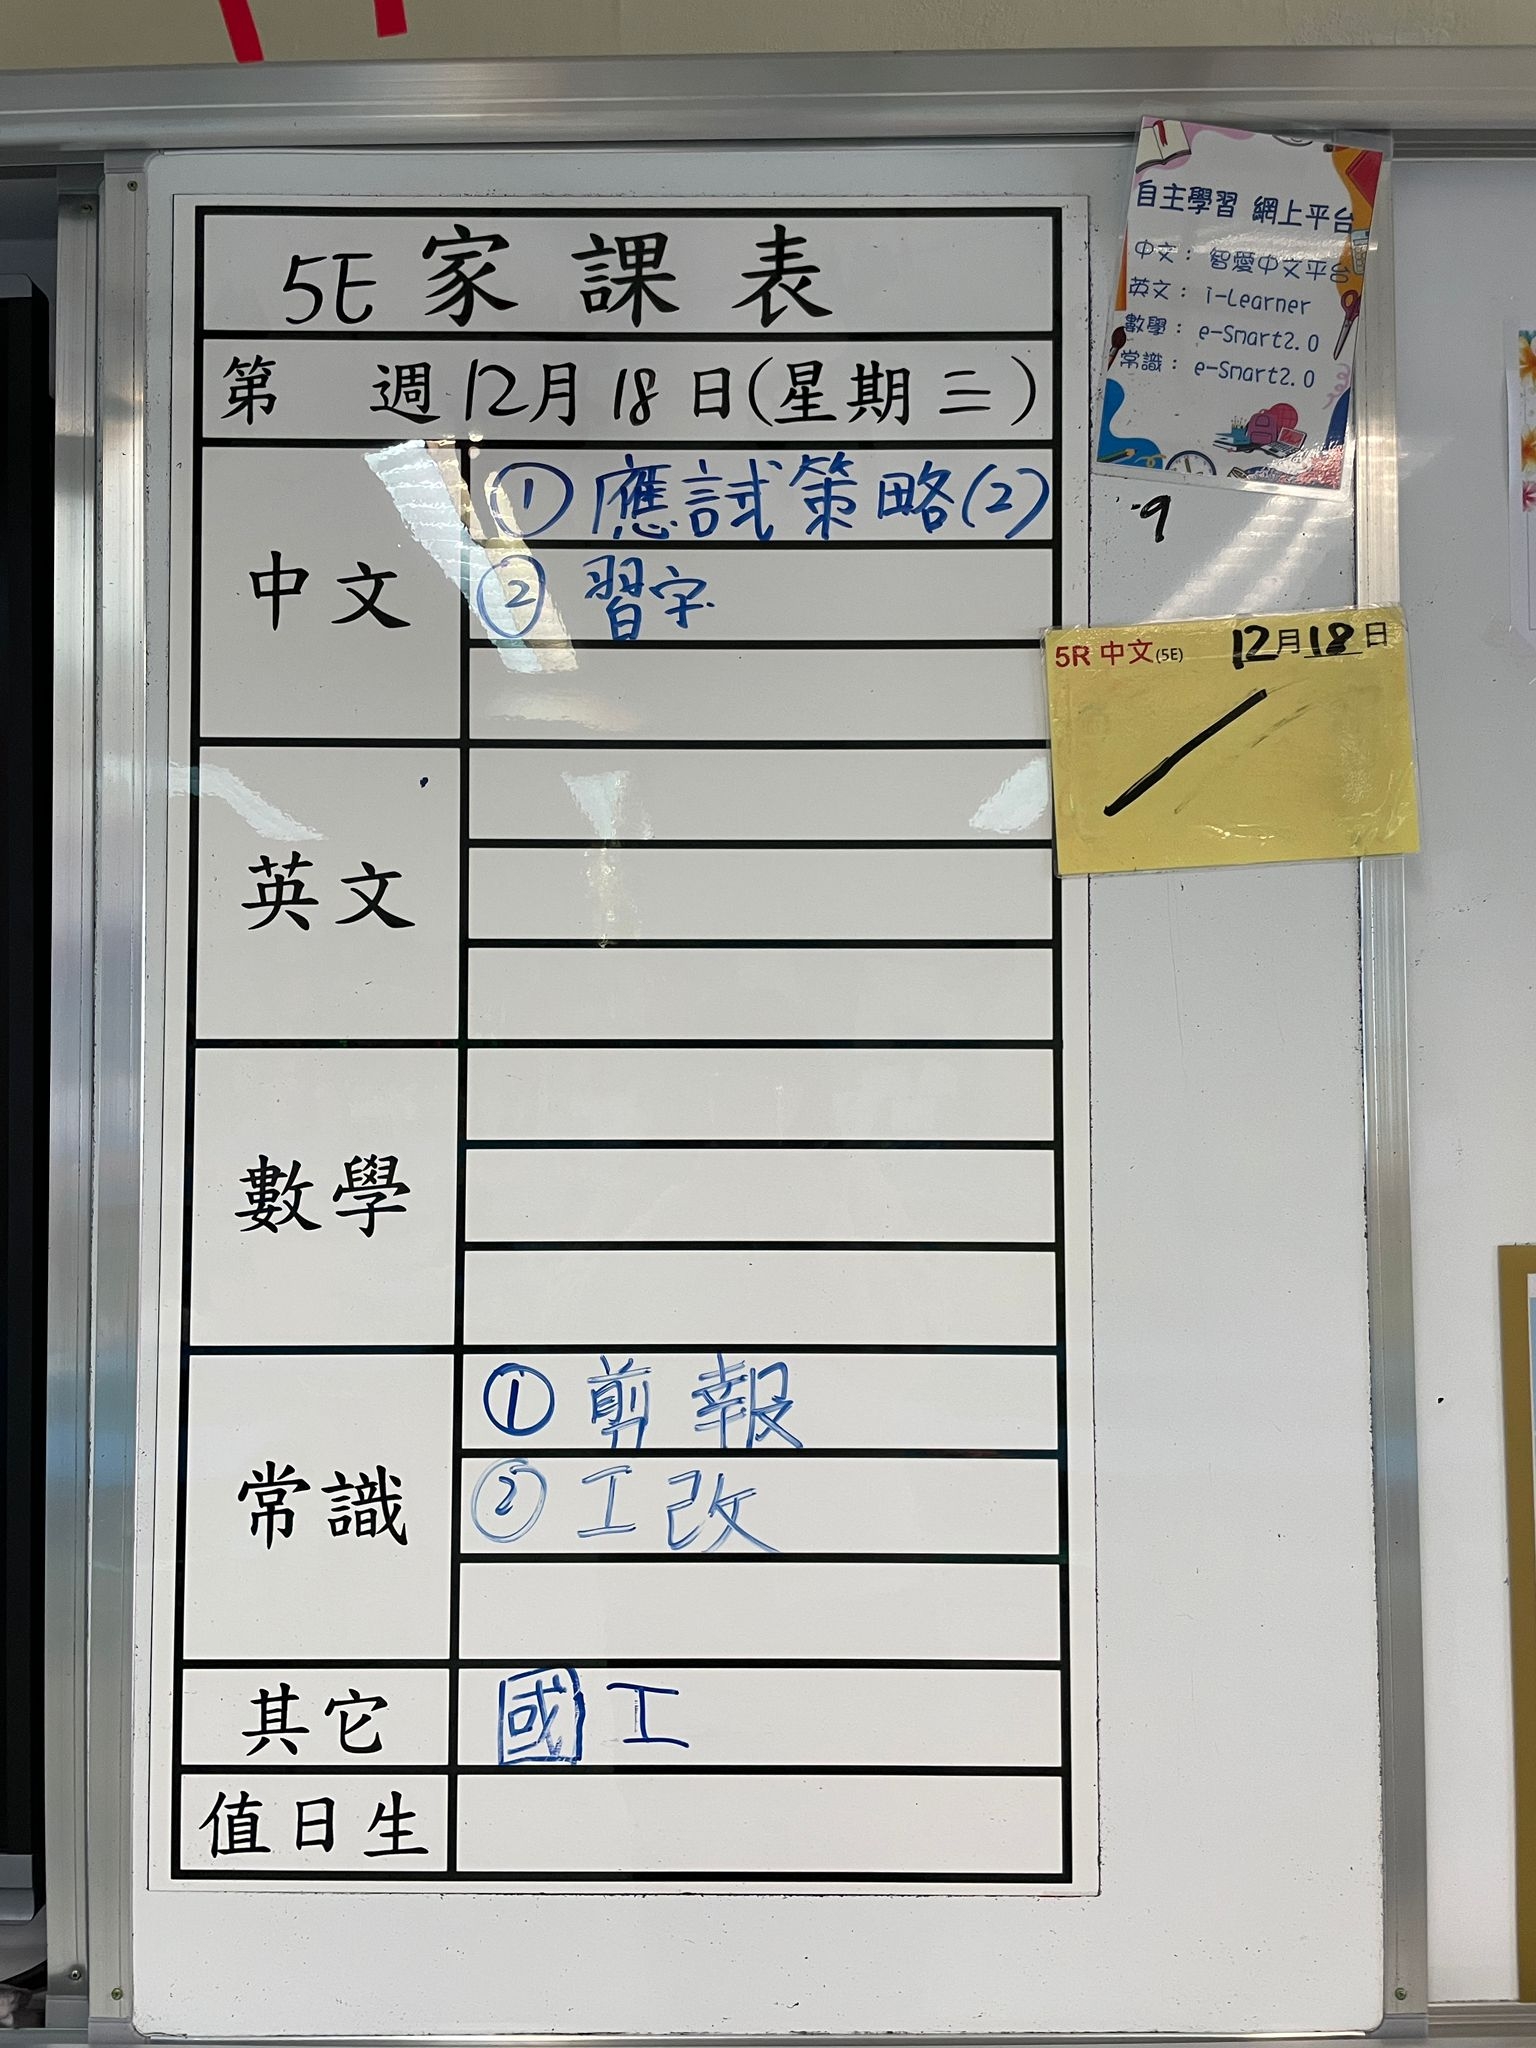 5E 家課表
第 週 12月18日(星期三)
中文
① 應試策略(2)
② 習字
英文
數學
常識
① 剪報
② 工改
其它
國 工
值日生
自主學習 網上平台
中文： 智愛中文平台
英文： i-Learner
數學： e-Smart2.0
常識： e-Smart2.0
9
5R 中文(5E) 12月18日